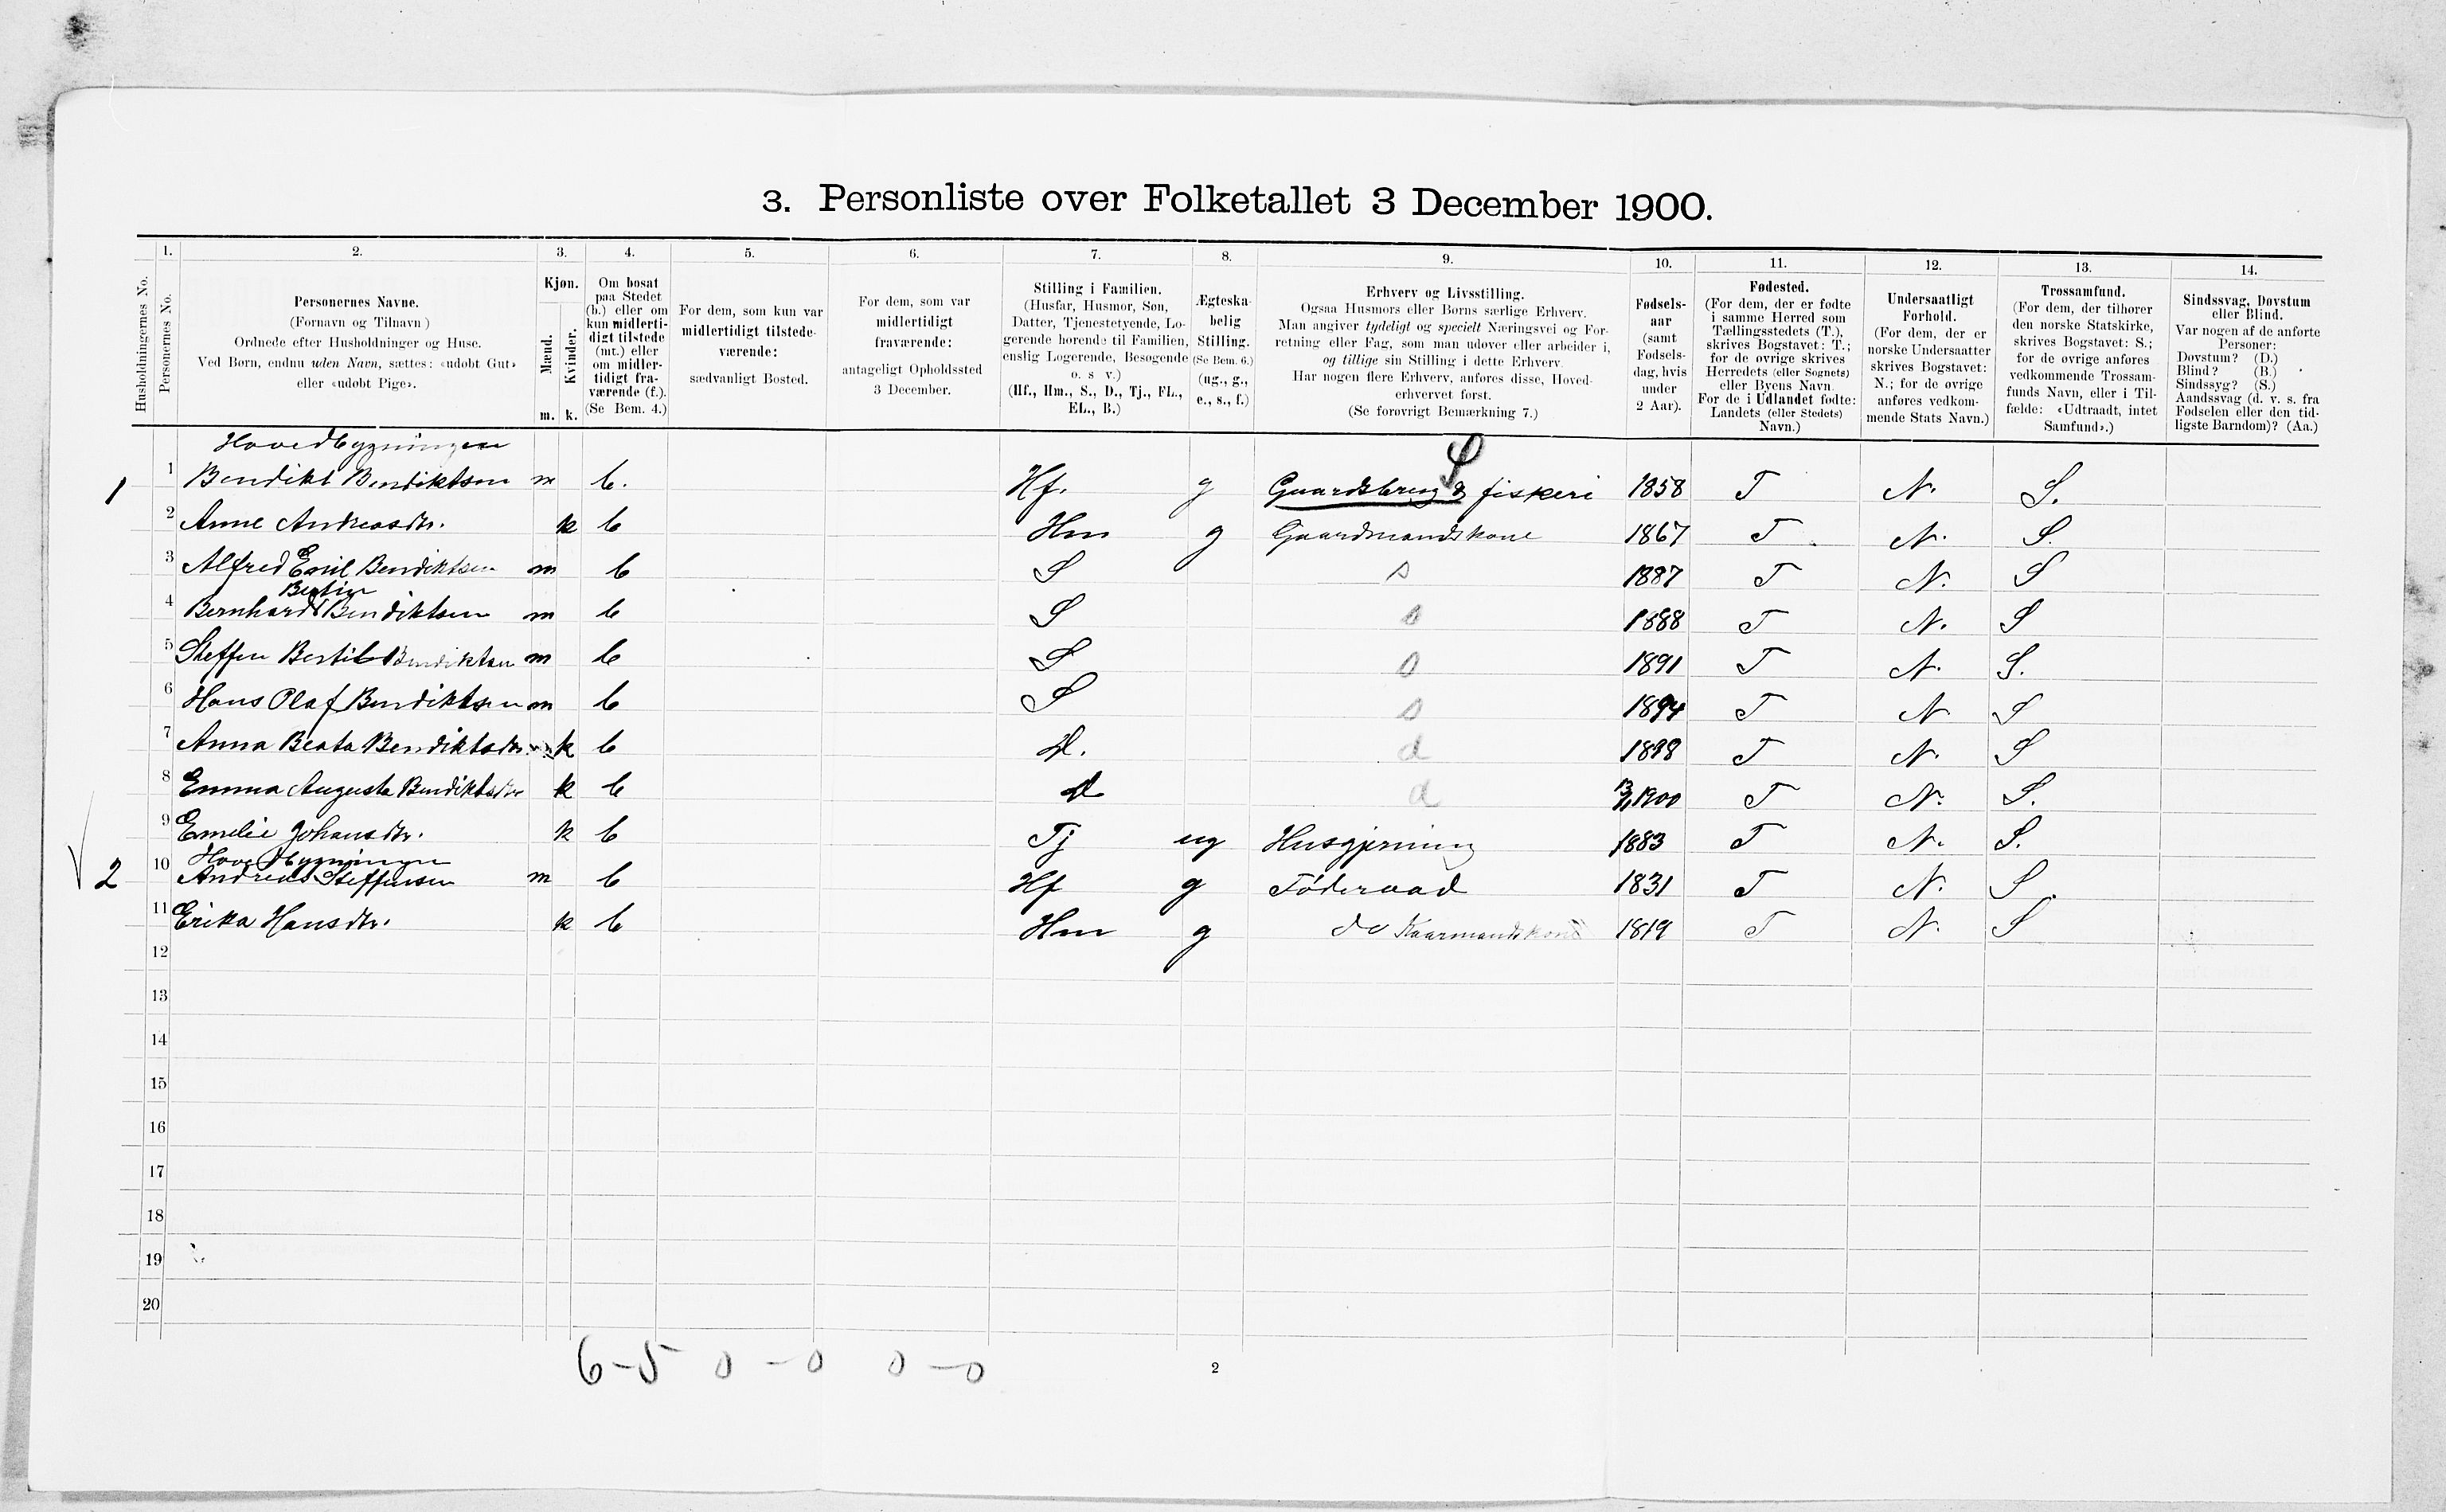 3. Personliste over Folketallet 3 December 1900.
1. 2. 3. 4. 5. 6. 7. 8. 9. 10. 11. 12. 13. 14.
Husholdningernes No.
Personernes No.
Personernes Navne.
(Fornavn og Tilnavn )
Ordnede efter Husholdninger og Huse.
Ved Børn, endnu uden Navn, sættes: «udøbt Gut»
eller «udøbt Pige».
Kjøn.
Mænd.
Kvinder.
m. k.
Om bosat
paa Stedet
(b.) eller om
kun midlerti-
digt tilstede
(mt.) eller
om midler-
tidigt fra-
værende (f.).
(Se Bem. 4.)
For dem, som kun var
midlertidigt tilstede-
værende:
sædvanligt Bosted.
For dem, som var
midlertidigt
fraværende:
antageligt Opholdssted
3 December.
Stilling i Familien.
(Husfar, Husmor, Søn,
Datter, Tjenestetyende, Lo-
gerende hørende til Familien,
enslig Logerende, Besøgende
o. s v.)
(Hf., Hm., S., D., Tj., FL.,
EL., B.)
Ægteska-
belig
Stilling.
(Se Bem. 6.)
(ug., g.,
e., s., f.)
Erhverv og Livsstilling.
Ogsaa Husmors eller Børns særlige Erhverv.
Man angiver tydeligt og specielt Næringsvei og For-
retning eller Fag, som man udøver eller arbeider i,
og tillige sin Stilling i dette Erhverv.
Har nogen flere Erhverv, anføres disse, Hoved-
erhvervet først.
(Se forøvrigt Bemærkning 7.)
Fødsels-
aar
(samt
Fødsels-
dag, hvis
under
2 Aar).
Fødested.
(For dem, der er fødte
i samme Herred som
Tællingsstedets (T.),
skrives Bogstavet: T.;
for de øvrige skrives
Herredets (eller Sognets)
eller Byens Navn.
For de i Udlandet fødte:
Landets (eller Stedets)
Navn.)
Undersaatligt
Forhold.
(For dem, der er
norske Undersaatter
skrives Bogstavet:
N.; for de øvrige
anføres vedkom-
mende Stats Navn.)
Trossamfund.
(For dem, der tilhører
den norske Statskirke,
skrives Bogstavet: S.;
for de øvrige anføres
vedkommende Trossam-
funds Navn, eller i Til-
fælde: «Udtraadt, intet
Samfund».)
Sindssvag, Døvstum
eller Blind.
Var nogen af de anførte
Personer:
Døvstum? (D.)
Blind? (B.)
Sindssyg? (S.)
Aandssvag (d. v. s. fra
Fødselen eller den tid-
ligste Barndom)? (Aa.)
Hovedbygningen
S
1 1 Bendikt Bendiktsen m b. Hf. g Gaardsbrug & fiskeri 1858 T N. S.
2 Anne Andreasdtr. k b Hm g Gaardmandskone 1867 T N. S.
3 Alfred Emil Bendiktsen m b S s 1887 T N. S
Bertin
4 Bernhard Bendiktsen m b S s 1888 T N. S
5 Steffen Bertil Bendiktsen m b S s 1891 T N. S.
6 Hans Olaf Bendiktsen m b S s 1894 T N S
7 Anna Beata Bendiktsdtr. k b d. d 1898 T N. S
8 Emma Augusta Bendiktsdtr k b d d 1900 T N. S.
9 Emelie Johansdtr. k b Tj ug Husgjerning 1883 T N. S.
Hovedbygningen
2 10 Andreas Steffensen m b Hf g Føderaad 1831 T N. S.
11 Erika Hansdtr. k b Hm g do Kaarmandskone 1819 T N. S
12
13
14
15
16
17
18
19
20
6-5 0-0 0-0
2